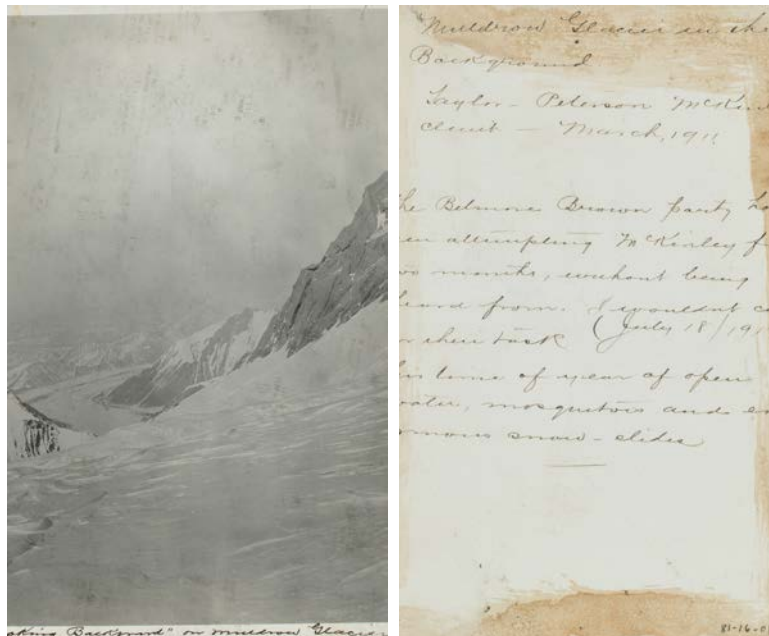 "oking Backward" on Muldrow Glacier
Muldrow Glacier in the
Background
Taylor - Peterson McKin
climb - March, 191
he Belmore Brown party ha
en attempting McKinley f
wo months, without being
heard from. I wouldn't c
(July 18/191
or their task
his time of year of open
water, mosquitois and en
ormous snow-slides
81-16-0